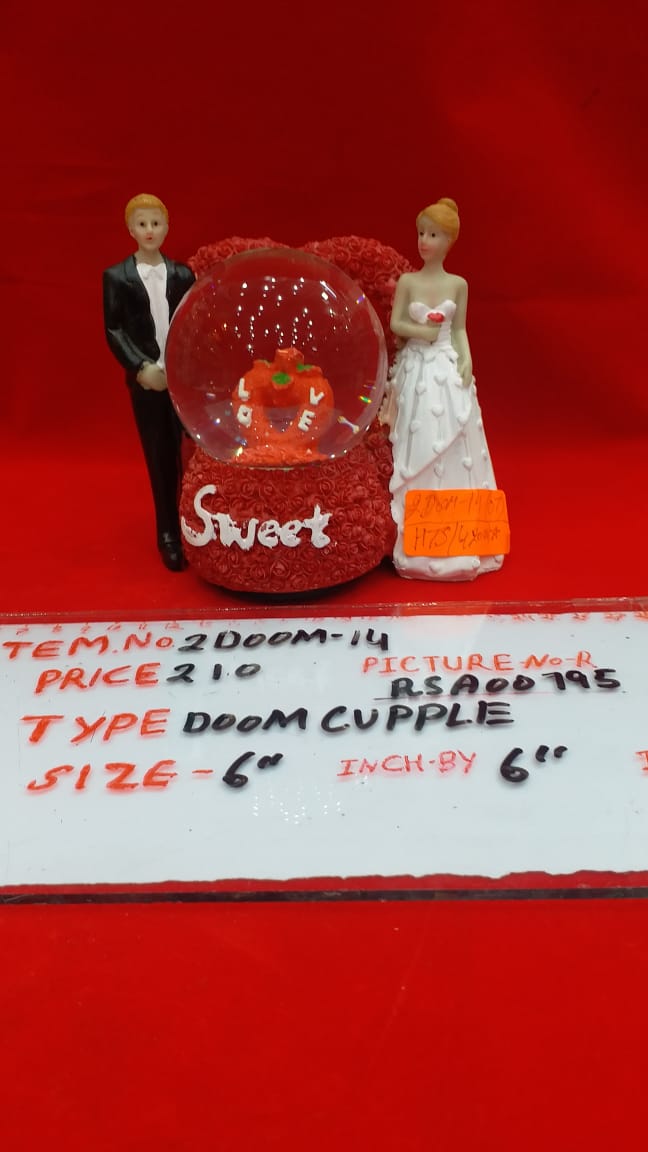 LOVE
Sweet
TEM.No 2DOOM-14
PRICE 210
PICTURE-No-R
RSA00795
TYPE DOOM CUPPLE
SIZE-6" INCH-BY 6"